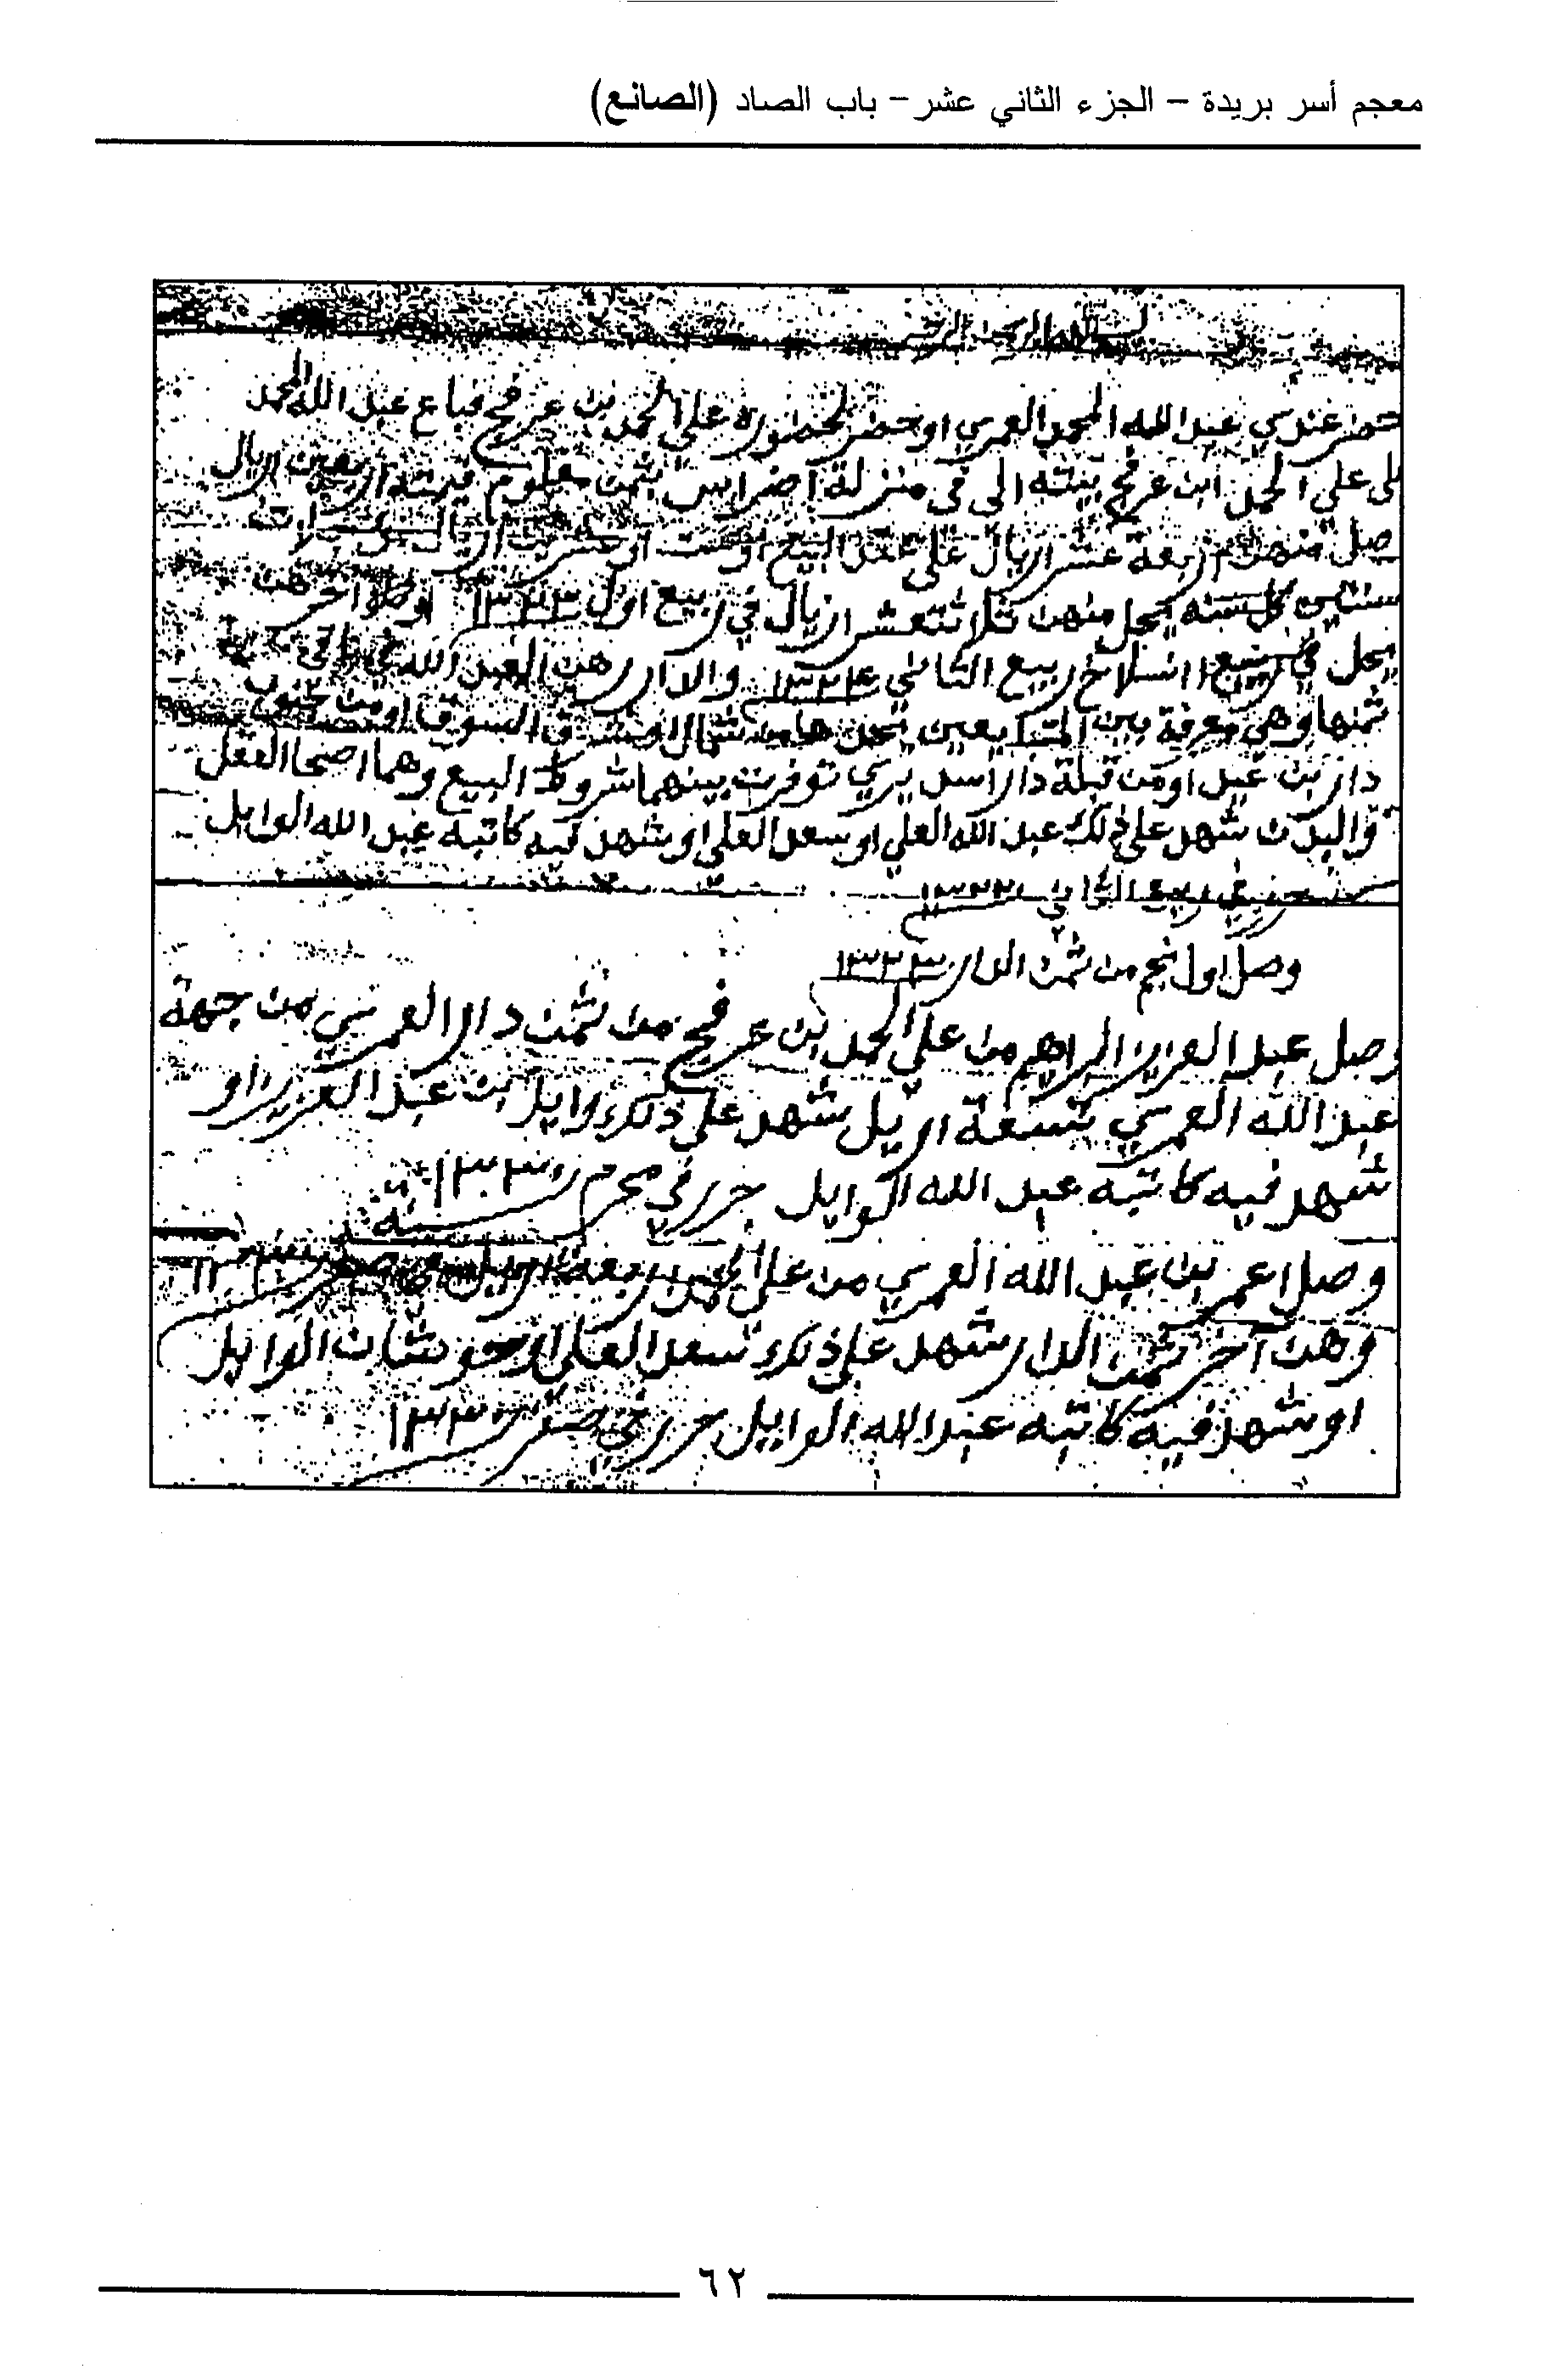 معجم أسر بريدة – الجزء الثاني عشر – باب الصاد (الصانع)
بسم الله الرحمن الرحيم
حضر عندي عبدالله المحمد العمري او حضر لحضوره علي الحمد بن عرفج فباع عبد الله المحمد
على علي الحمد ابن عرفج بيته الى في منزلة اضراس بثمن معلوم قدرته اربعين اريال
وصل منهن اربعة عشر اريال على عقد البيع او ست او عشرين اريال
سنتين كل سنه يحل منهن ثلاثتعشر اريال في ربيع اول ١٣٢٣ او
يحل في انسلاخ ربيع الثاني ١٣٢٤ والدار رهن العبد الله في
ثمنها وهي معرفة بين المتبايعين يحدها من شمال او شرق السوق او من جنوب
دار بن عبيد او من قبلة دار اسد يري توفرت بينهما شروط البيع وهما اصحا العقل
والبدن شهد على ذلك عبد الله العلي او سعد العلي او شهد فيه كاتبه عبد الله الوايل
حرر في ربيع الثاني ١٣٢٢
وصل اول نجم من ثمن الدار ١٣٢٣
وصل عبد العزيز البراهيم من علي الحمد بن عرفج من ثمن دار العمري من جهة
عبد الله العمري تسعة اريل شهد على ذلك وايل بن عبد العزيز او
شهد فيه كاتبه عبد الله الوايل حرر في محرم سنة
وصل اعمر بن عبد الله العمري من علي الحمد اربعة اريل
وهن آخر ثمن الدار شهد على ذلك سعد العلي او حوشان الوايل
او شهد فيه كاتبه عبد الله الوايل حرر في صفر
٦٢